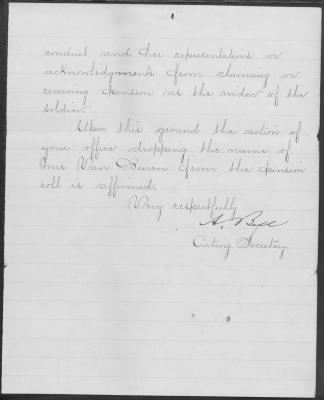 conduct and her representations or
acknowledgments from claiming or
receiving pension as the widow of the
soldier.
Upon this ground the action of
your office dropping the name of
Mrs Van Buren from the pension
roll is affirmed.
Very respectfully
A. Bell
Acting Secretary.